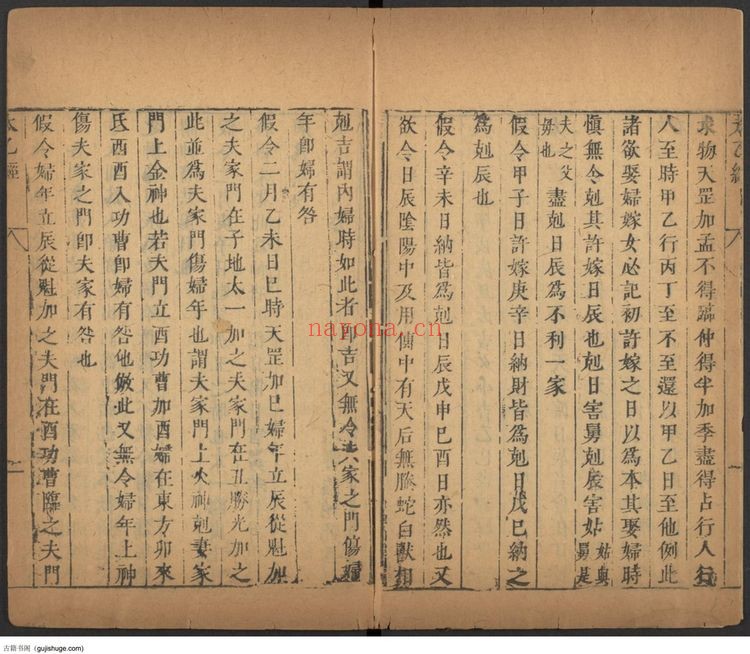 求物天罡加孟不得臨仲得半加季盡得占行人行
人至時甲乙行丙丁至不至還以甲乙日至他例此
諸欲娶婦嫁女必記初許嫁之日以為本其娶婦時
慎無令剋其許嫁日辰也剋日害舅剋辰害姑姑與舅是
夫之父母也 盡剋日辰為不利一家
假令甲子日許嫁庚辛日納財皆為剋日戊巳納之
為剋辰也
假令辛未日納皆為剋日辰戊申巳酉日亦然也又
欲令日辰陰陽中及用傳中有天后無螣蛇白獸相
剋吉謂內婦時如此者即吉又無令夫家之門傷婦
年即婦有咎
假令二月乙未日巳時天罡加巳婦年立辰從魁加
之夫家門在子地太一加之夫家門在丑勝光加之
此並為夫家門傷婦年也謂夫家門上火神剋妻家
門上金神也若夫門立酉功曹加酉婦在東方卯來
氐酉酉入功曹即婦有咎他倣此又無令婦年上神
傷夫家之門即夫家有咎也
假令婦年立辰從魁加之夫門在酉功曹臨之夫門
太乙經
nayona.cn
古籍书阁（gujishuge.com）